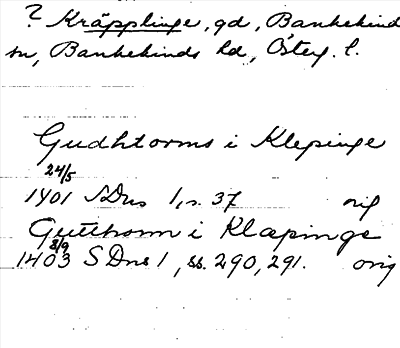 ? Kräpplinge, gd, Bankekind
sn, Bankekinds hd, Österg. l.
Gudhtorms i Klepinge
24/5
1401 SDns 1, s. 37 orig
Gutthorm i Klapinge
8/9
1403 SDns 1, ss. 290, 291. orig